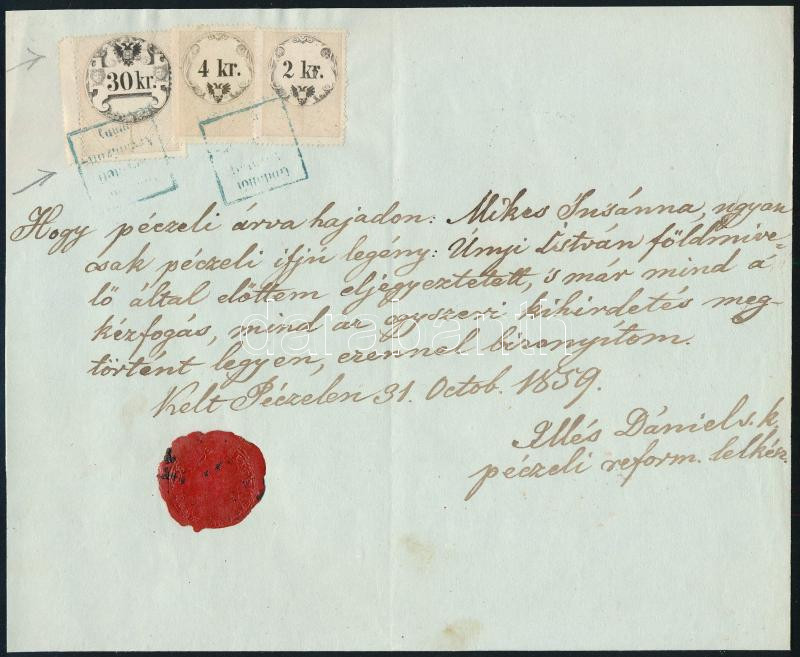 30 kr.
4 kr.
2 kr.
Hogy péczeli árva hajadon: Mikes Susánna, ugyan
csak péczeli ifjú legény: Únyi István földmíve-
lő által előttem eljegyeztetett, 's már mind a
kézfogás, mind az egyszeri kihirdetés meg-
történt legyen, ezennel bizonyítom.
Kelt Péczelen 31. Octob. 1859.
Illés Dániel s. k.
péczeli reform. lelkész.
darabanth